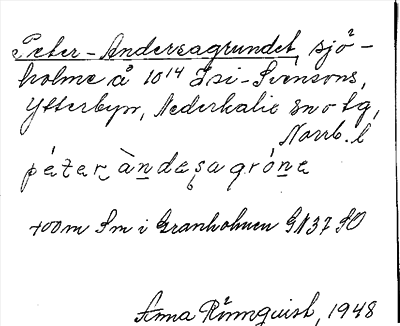 Peter-Andersagrundet, sjö-
holme å 10¹⁴ Isi-Svensons,
Ytterbyn, Nederkalix sn o tg,
Norrb. l
péter àndesagróne
400m Sm i Granholmen GN37 SO
Anna Rönnquist, 1948